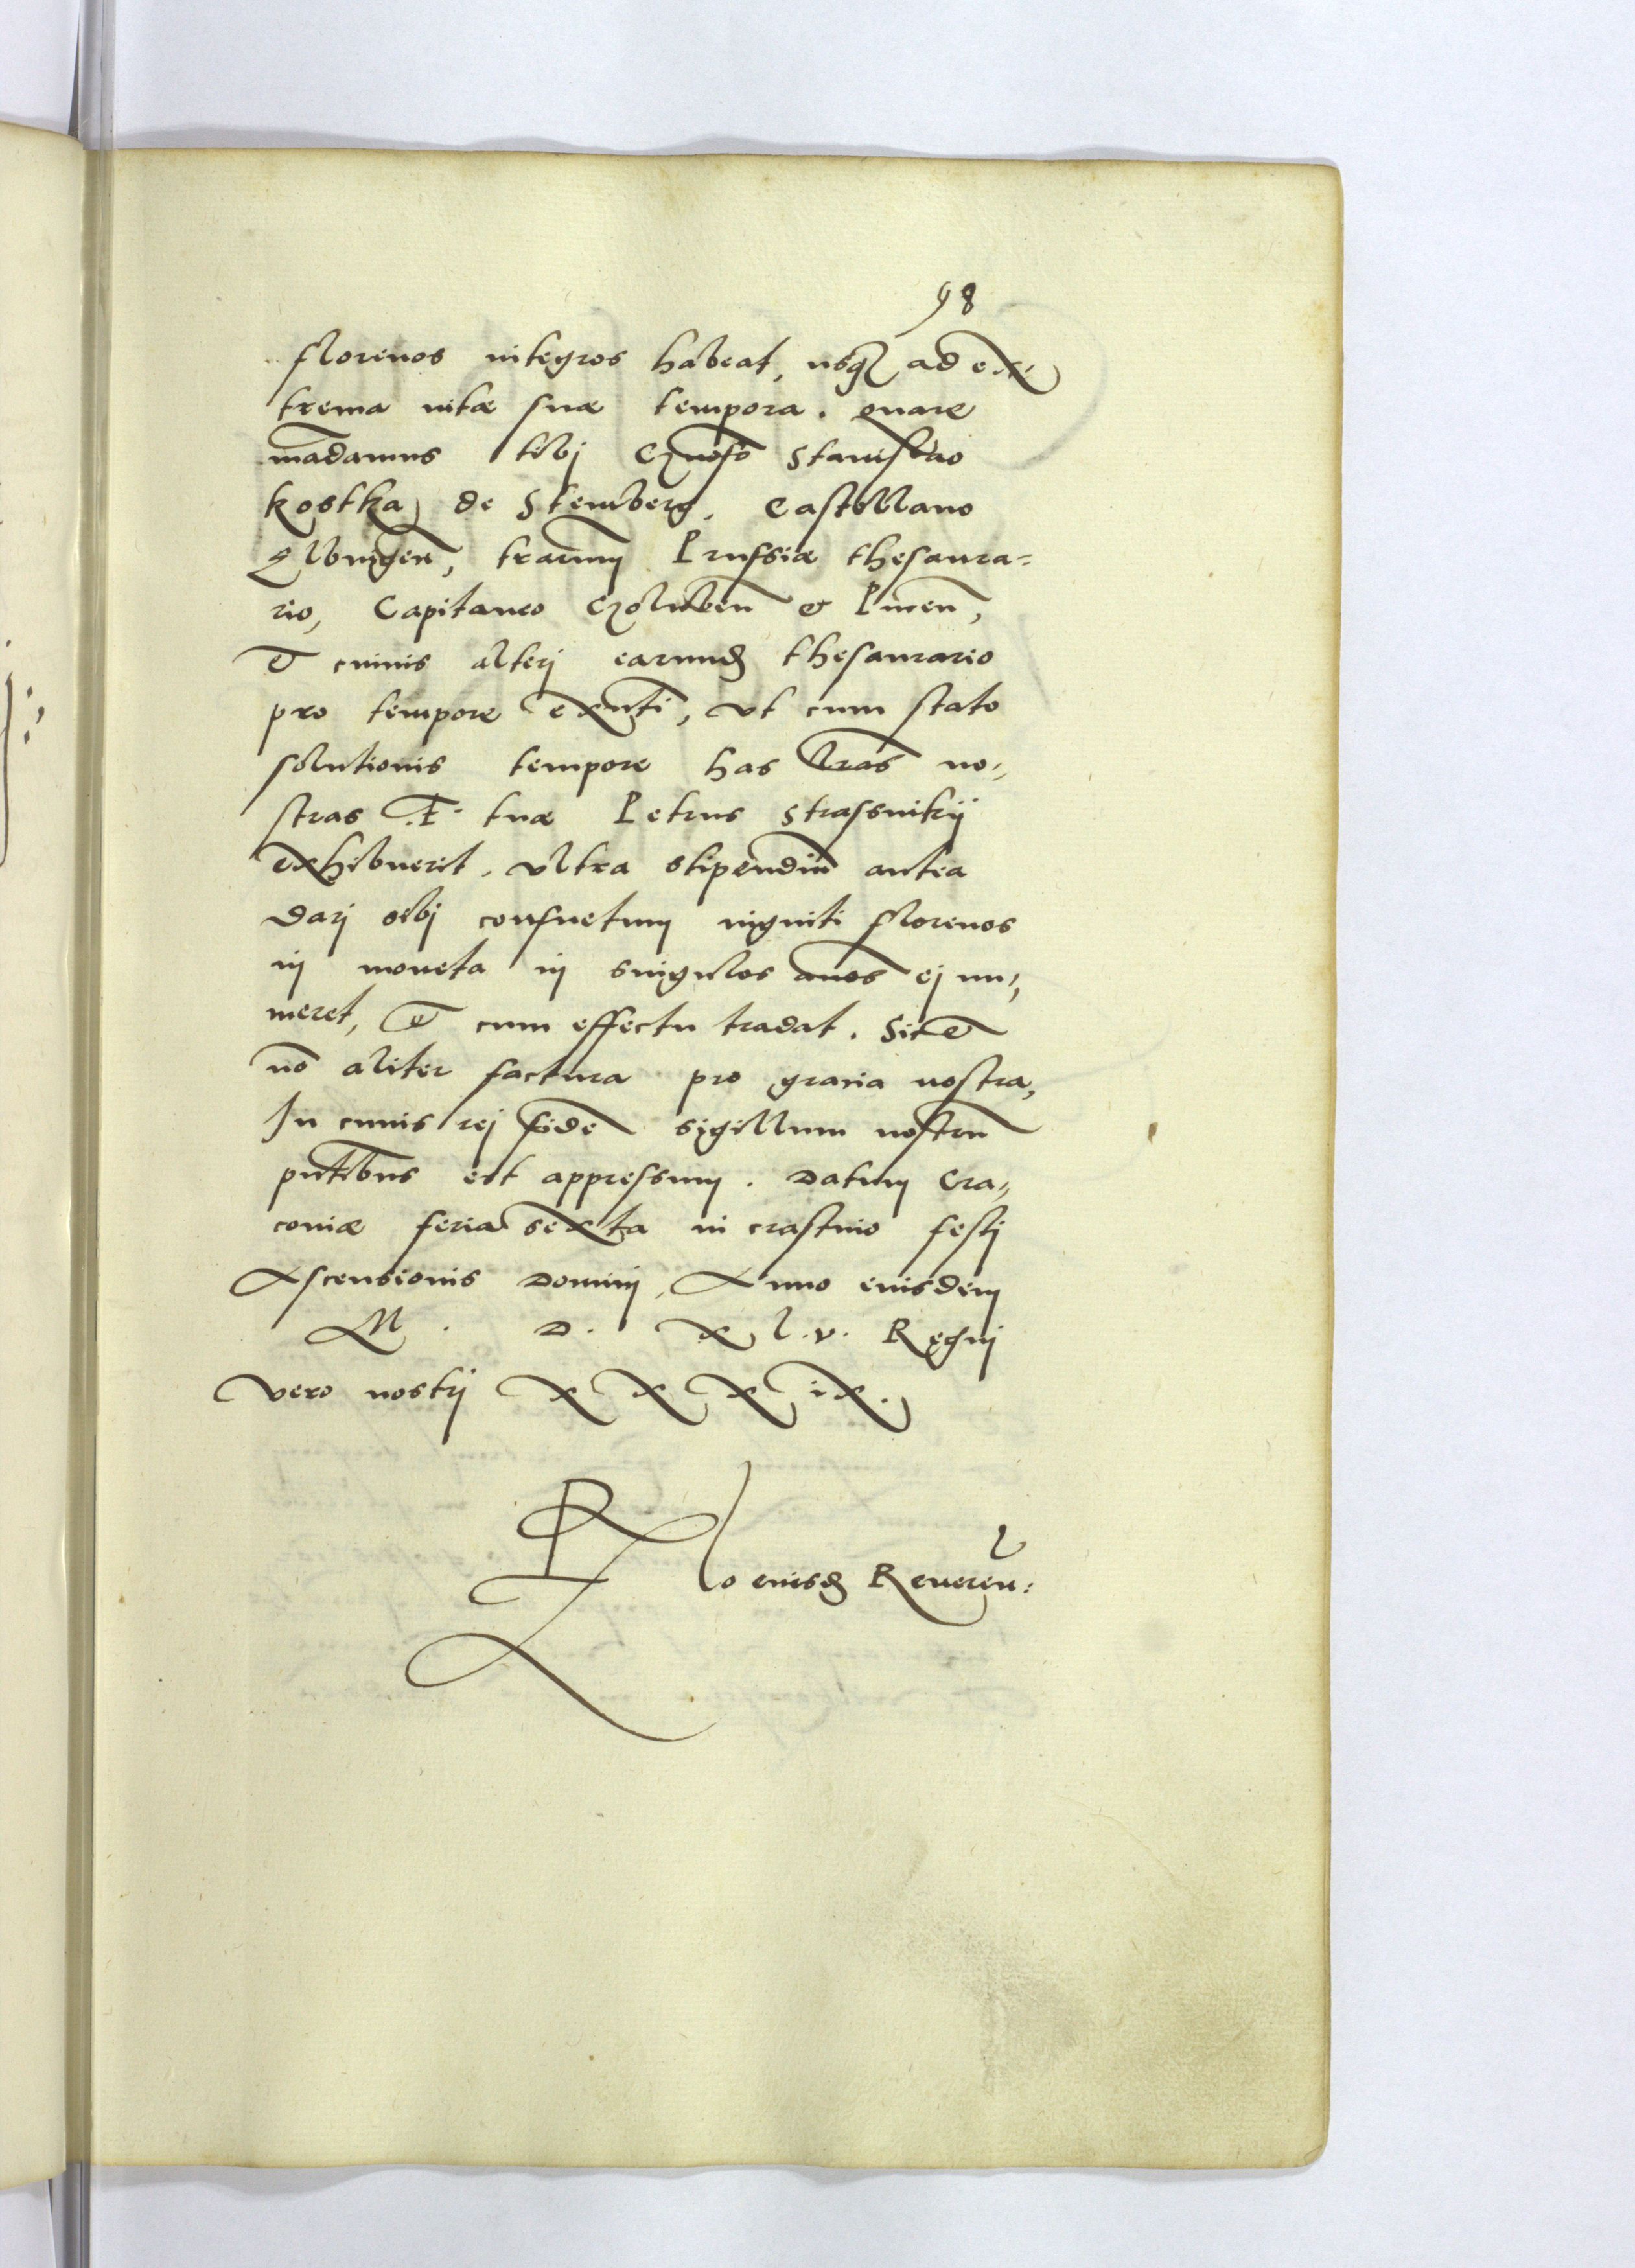 98
florenos integros habeat, usq₃ ad ex-
trema vitæ suæ tempora. quare
mādamus tibj Gnoso Stanislao
Kostka de Stemberg, Castellano
Elbingeñ, trarum Prussiæ thesaura=
rio, Capitaneo Golubeñ & Pineñ,
& cuiuis alterj earund thesaurario
pro tempore exñti, vt cum stato
solutionis tempore has lras no-
stras F. tuæ Petrus Strassnikij
exhibuerit, vltra stipendiū antea
darj sibj consuetum viginti florenos
in moneta in singulos anos ej nu-
meret, & cum effectu tradat. Sit
nō aliter factura pro gracia nostra,
In cuius rej fidē sigillum nostrū
pñtibus est appressum. Datum Cra-
coviæ feria sexta in crastino festj
Ascensionis Dominj, Anno eiusdem
M. D. x l. v. Regnj
vero nostrj x x x ix.
R lo eiusd Reueren: